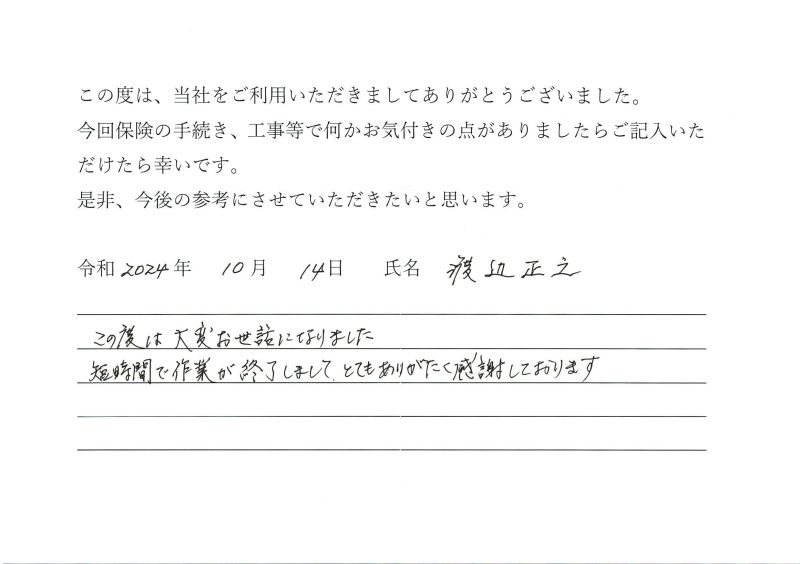 この度は、当社をご利用いただきましてありがとうございました。
今回保険の手続き、工事等で何かお気付きの点がありましたらご記入いた
だけたら幸いです。
是非、今後の参考にさせていただきたいと思います。
令和 2024 年 10 月 14 日 氏名 渡辺正之
この度は大変お世話になりました
短時間で作業が終了しまして、とてもありがたく感謝しております